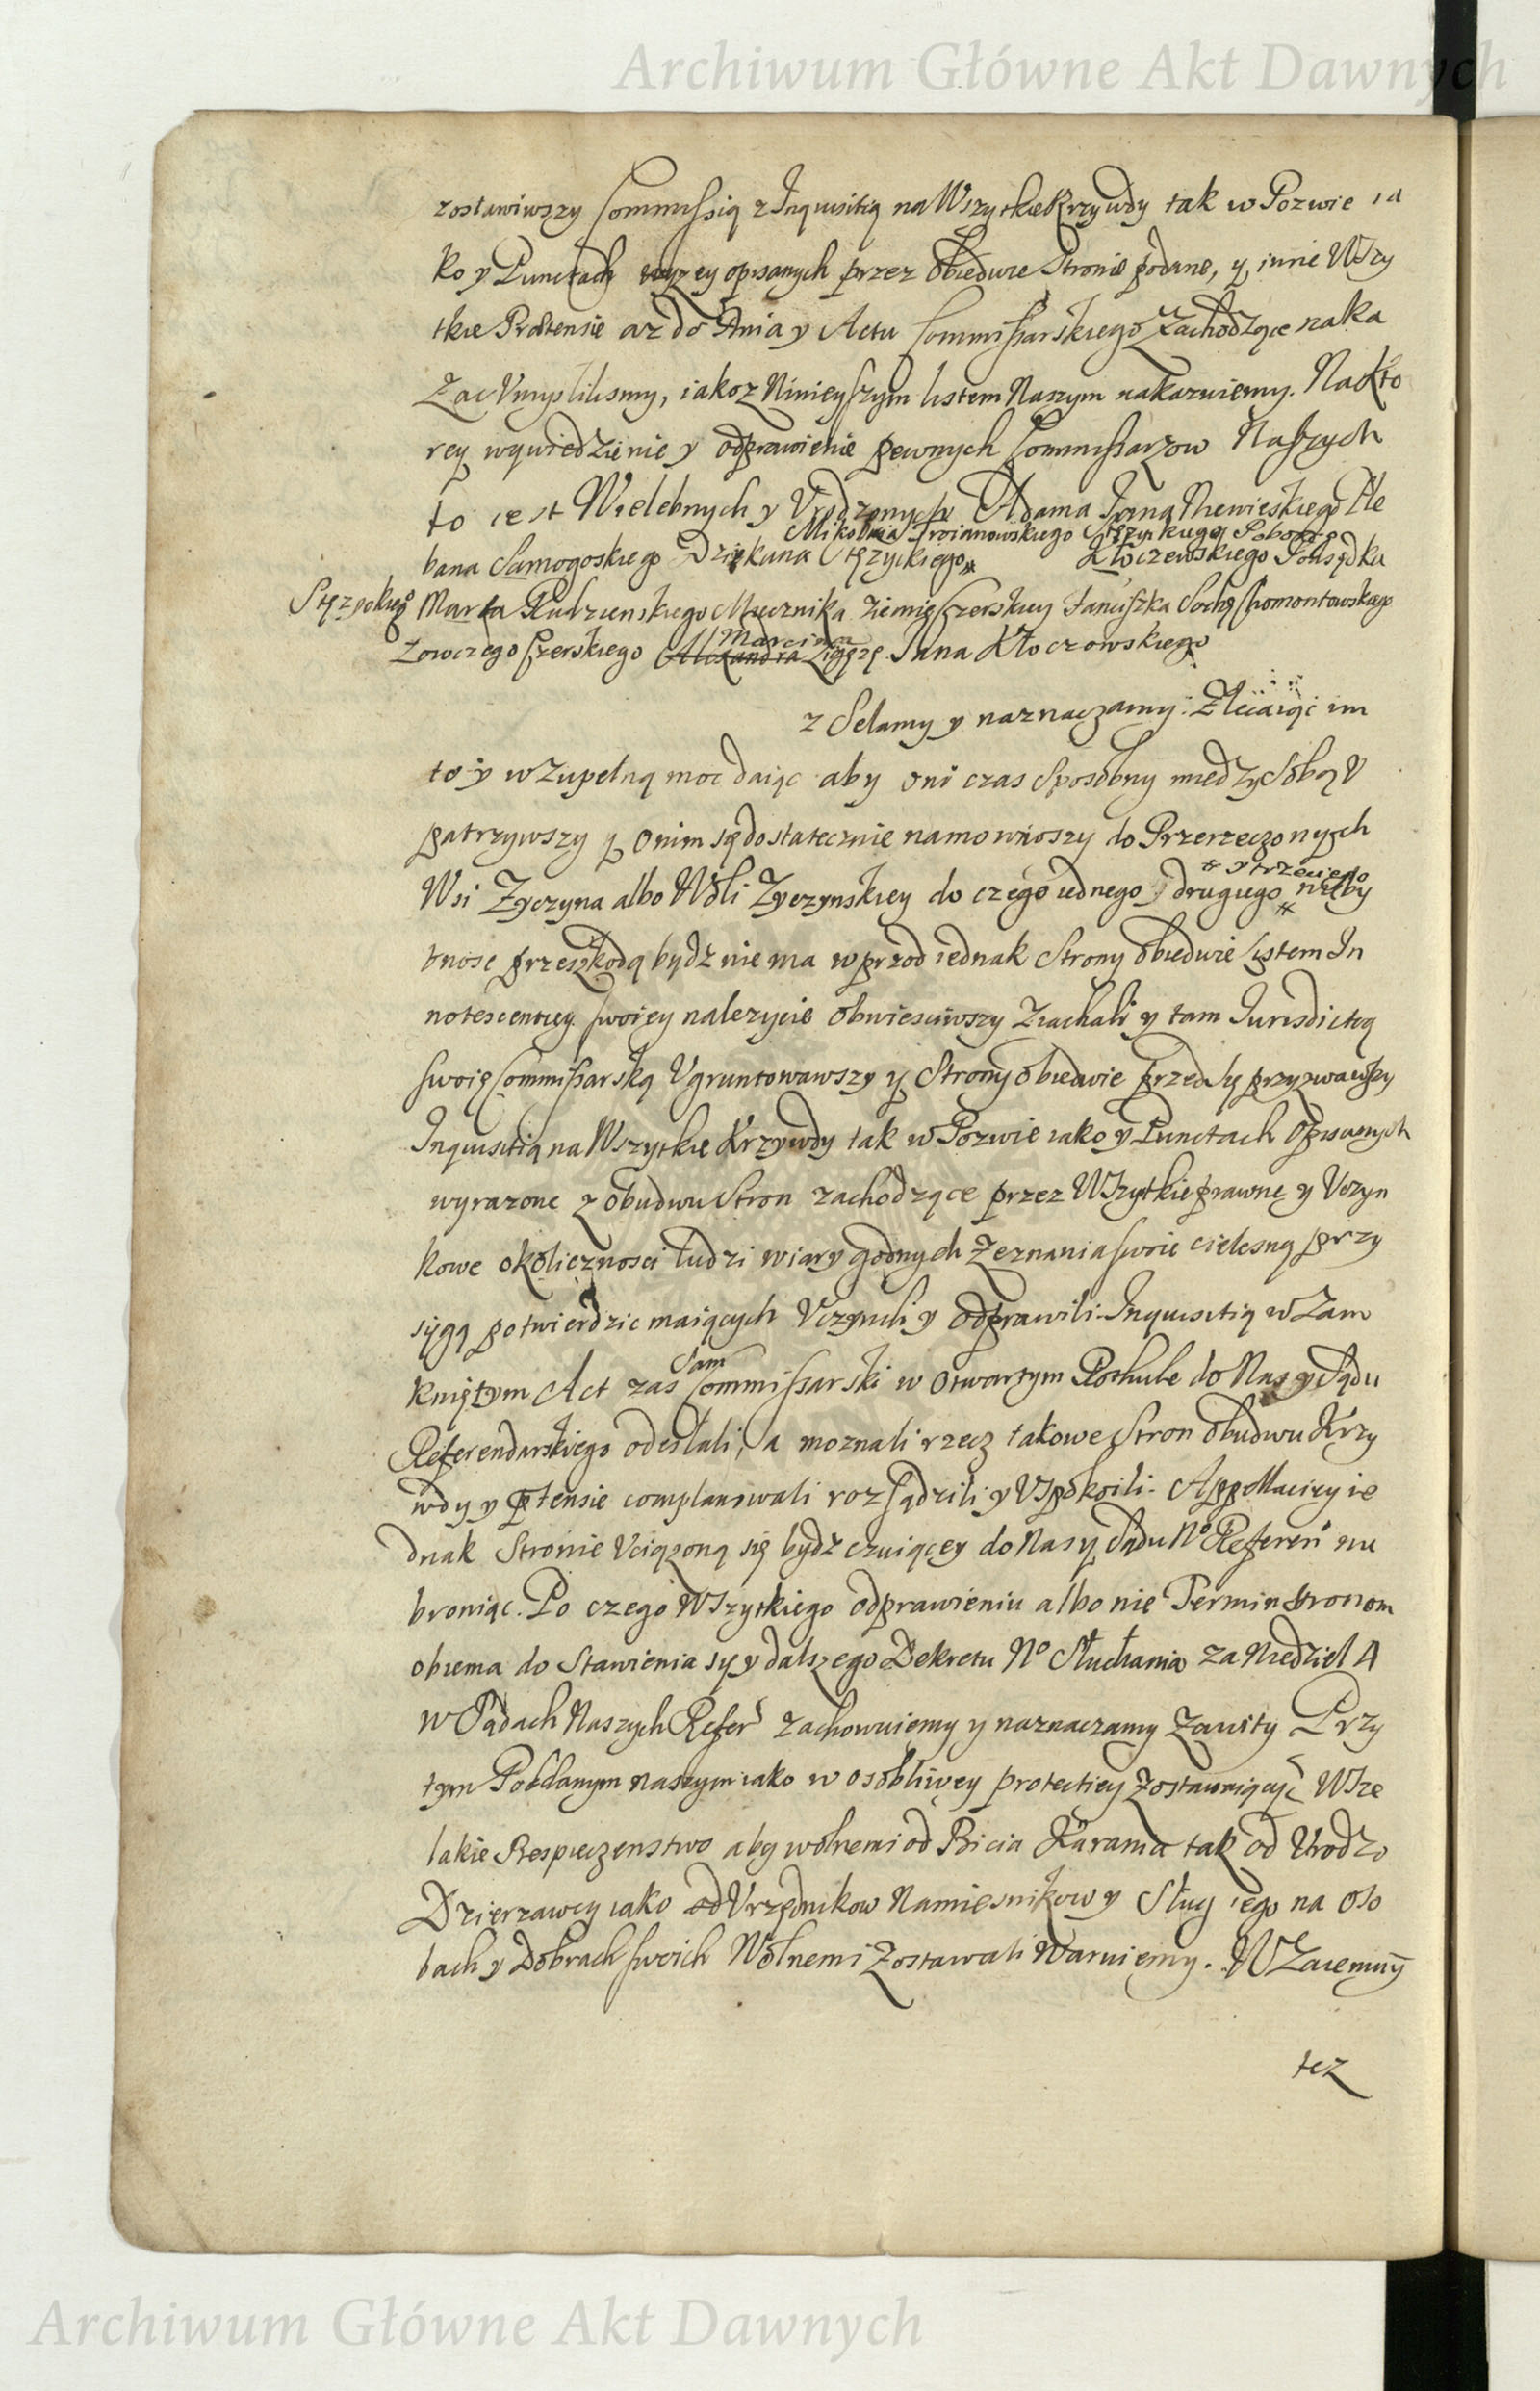 Archiwum Główne Akt Dawnych
zostawiwszy Commissią z Inquisitią na Wszytkie Krzywdy tak w Pozwie ia
ko y Punctach wyzey opisanych przez obiedwie Stronie podane, y innie Wszy
tkie Praetensie az do Dnia y Actu Commissarskiego zachodzące naka
zac Vmyslilismy, iakoz Ninieyszym listem Naszym nakazuiemy. Na Kto
rey wywiedzienie y odprawienie pewnych Commissarzow Naszych
to iest Wielebnych y Vrodzonych Adama Jana Ple
Mikołaia Troianowskiego Stęzyckiego Poborcę
bana Samogoskiego Dziekana Stęzyckiego Kłoczewskiego Podsędka
Stęzyckiego Marka Rudzienskiego Miecznika ziemie Czerskiey Fanciszka Sochę
Łowczego Czerskiego Alexandra Marcina Jana Kłoczowskiego
z Selamy y naznaczamy: Zlecaiąc im
to y w Zupełną moc daiąc aby oni czas Sposobny miedzy Sobą V
patrzywszy y o nim się dostatecznie namowiwszy do Przerzeczonych
Wsi Zyczyna albo Woli Zyczynskiey do czego iednego y drugiego nieby
y trzeciego
tnosc przeszkodą bydz nie ma wprzod iednak Strony obiedwie listem In
notescentiey swoiey nalezycie obwiesciwszy Ziachali y tam Iurisdictią
swoię Commissarską Vgruntowawszy y Strony obiedwie przed się przyzwawszy
Inquisitią na Wszytkie Krzywdy tak w Pozwie iako y Punctach Opisanych
wyrazone z obudwu Stron zachodzące przez Wszytkie prawne y Vczyn
kowe okolicznosci ludzi wiary godnych zeznania swoie cielesną przy
sięgą potwierdzic maiących Vczynili y odprawili. Inquisitią w Zam
kniętym Act zas sam Commissarski w otwartym Rothule do Nas y Sądu
Referendarskiego odesłali, a moznali rzecz takowe Stron obudwu Krzy
wdy y Ptensie complanowali rozsądzili y Vspokoili. Appellaciey ie
dnak Stronie Vciązoną się bydz czuiącey do Nas y Sądu No Referen nie
broniąc. Po czego Wszytkiego odprawieniu albo nie Termin Stronom
obiema do Stawienia się y dalszego Dekretu No Słuchania za Niedziel 4
w Sądach Naszych Refer zachowuiemy y naznaczamy zawity Przy
tym Poddanym naszym iako w osobliwey protectiey zostawaiącym Wsze
lakie Bespieczenstwo aby wolnemi od Bicia Karania tak od Vrodzo
Dzierzawcy iako od Vrzędnikow Namiesnikow y Sług iego na Oso
bach y Dobrach swoich Wolnemi Zostawali Waruiemy. W Zaiemny
tez
Archiwum Główne Akt Dawnych